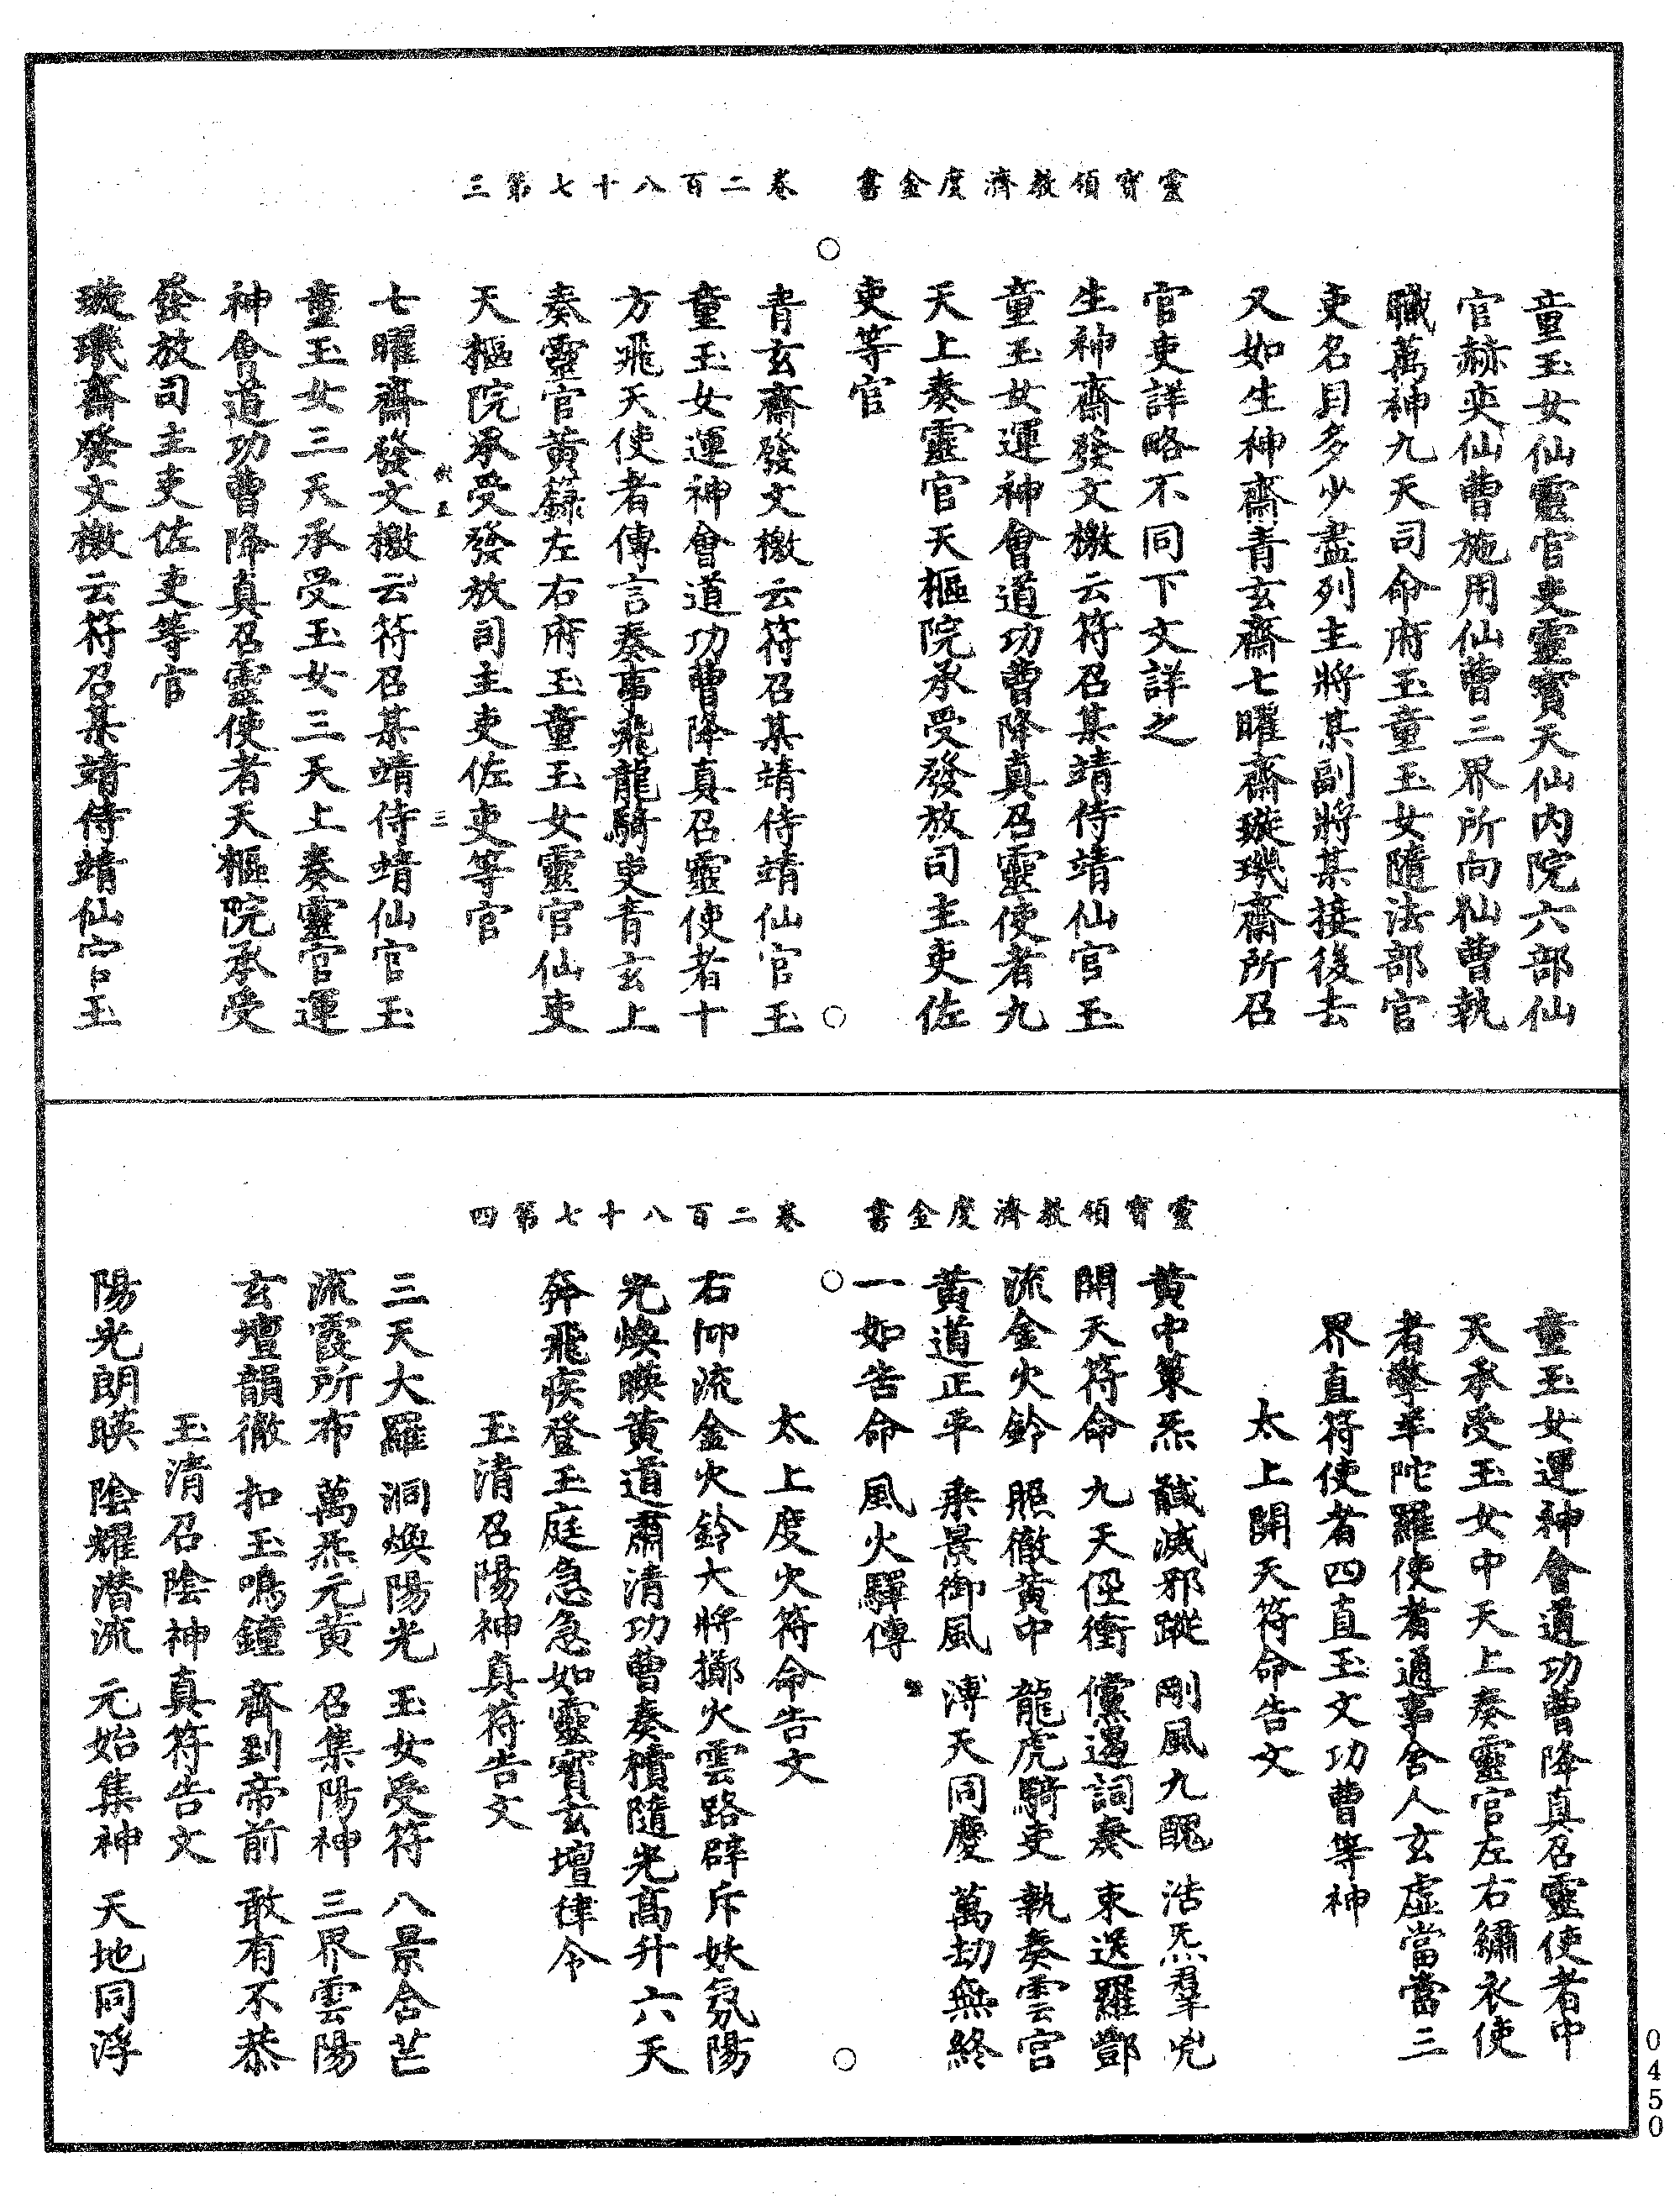 靈寶領教濟度金書　卷二百八十七第三
童玉女仙靈官吏靈寶天仙内院六部仙
官赫奕仙曹施用仙曹三界所向仙曹執
職萬神九天司命府玉童玉女隨法部官
吏名目多少盡列主將某副將某接後去
又如生神齋青玄齋七曜齋璇璣齋所召
官吏詳略不同下文詳之
生神齋發文檄云符召某靖侍靖仙官玉
童玉女運神會道功曹降真召靈使者九
天上奏靈官天樞院承受發放司主吏佐
吏等官
青玄齋發文檄云符召某靖侍靖仙官玉
童玉女運神會道功曹降真召靈使者十
方飛天使者傳言奏事飛龍騎吏青玄上
奏靈官黄籙左右府玉童玉女靈官仙吏
天樞院承受發放司主吏佐吏等官
三
七曜齋發文檄云符召某靖侍靖仙官玉
童玉女三天承受玉女三天上奏靈官運
神會道功曹降真召靈使者天樞院承受
發放司主吏佐吏等官
璇璣齋發文檄云符召某靖侍靖仙官玉
靈寶領教濟度金書　卷二百八十七第四
童玉女運神會道功曹降真召靈使者中
天承受玉女中天上奏靈官左右繡衣使
者擎羊陀羅使者通事舍人玄虛當當三
界直符使者四直玉文功曹等神
太上開天符命告文
黄中策炁　馘滅邪蹤　剛風九醜　浩炁羣兇
開天符命　九天徑衝　儻遏詞奏　束送羅酆
流金火鈴　照徹黄中　龍虎騎吏　執奏雲宫
黄道正平　乘景御風　溥天同慶　萬劫無終
一如告命　風火驛傳
太上度火符命告文
右仰流金火鈴大將擲火雲路辟斥妖氛陽
光煥暎黄道肅清功曹奏積隨光高升六天
奔飛疾登玉庭急急如靈寶玄壇律令
玉清召陽神真符告文
三天大羅　洞煥陽光　玉女受符　八景合芒
流霞所布　萬炁元黄　召集陽神　三界雲陽
玄壇韻徹　扣玉鳴鐘　齊到帝前　敢有不恭
玉清召陰神真符告文
陽光朗暎　陰耀潛流　元始集神　天地同浮
0450